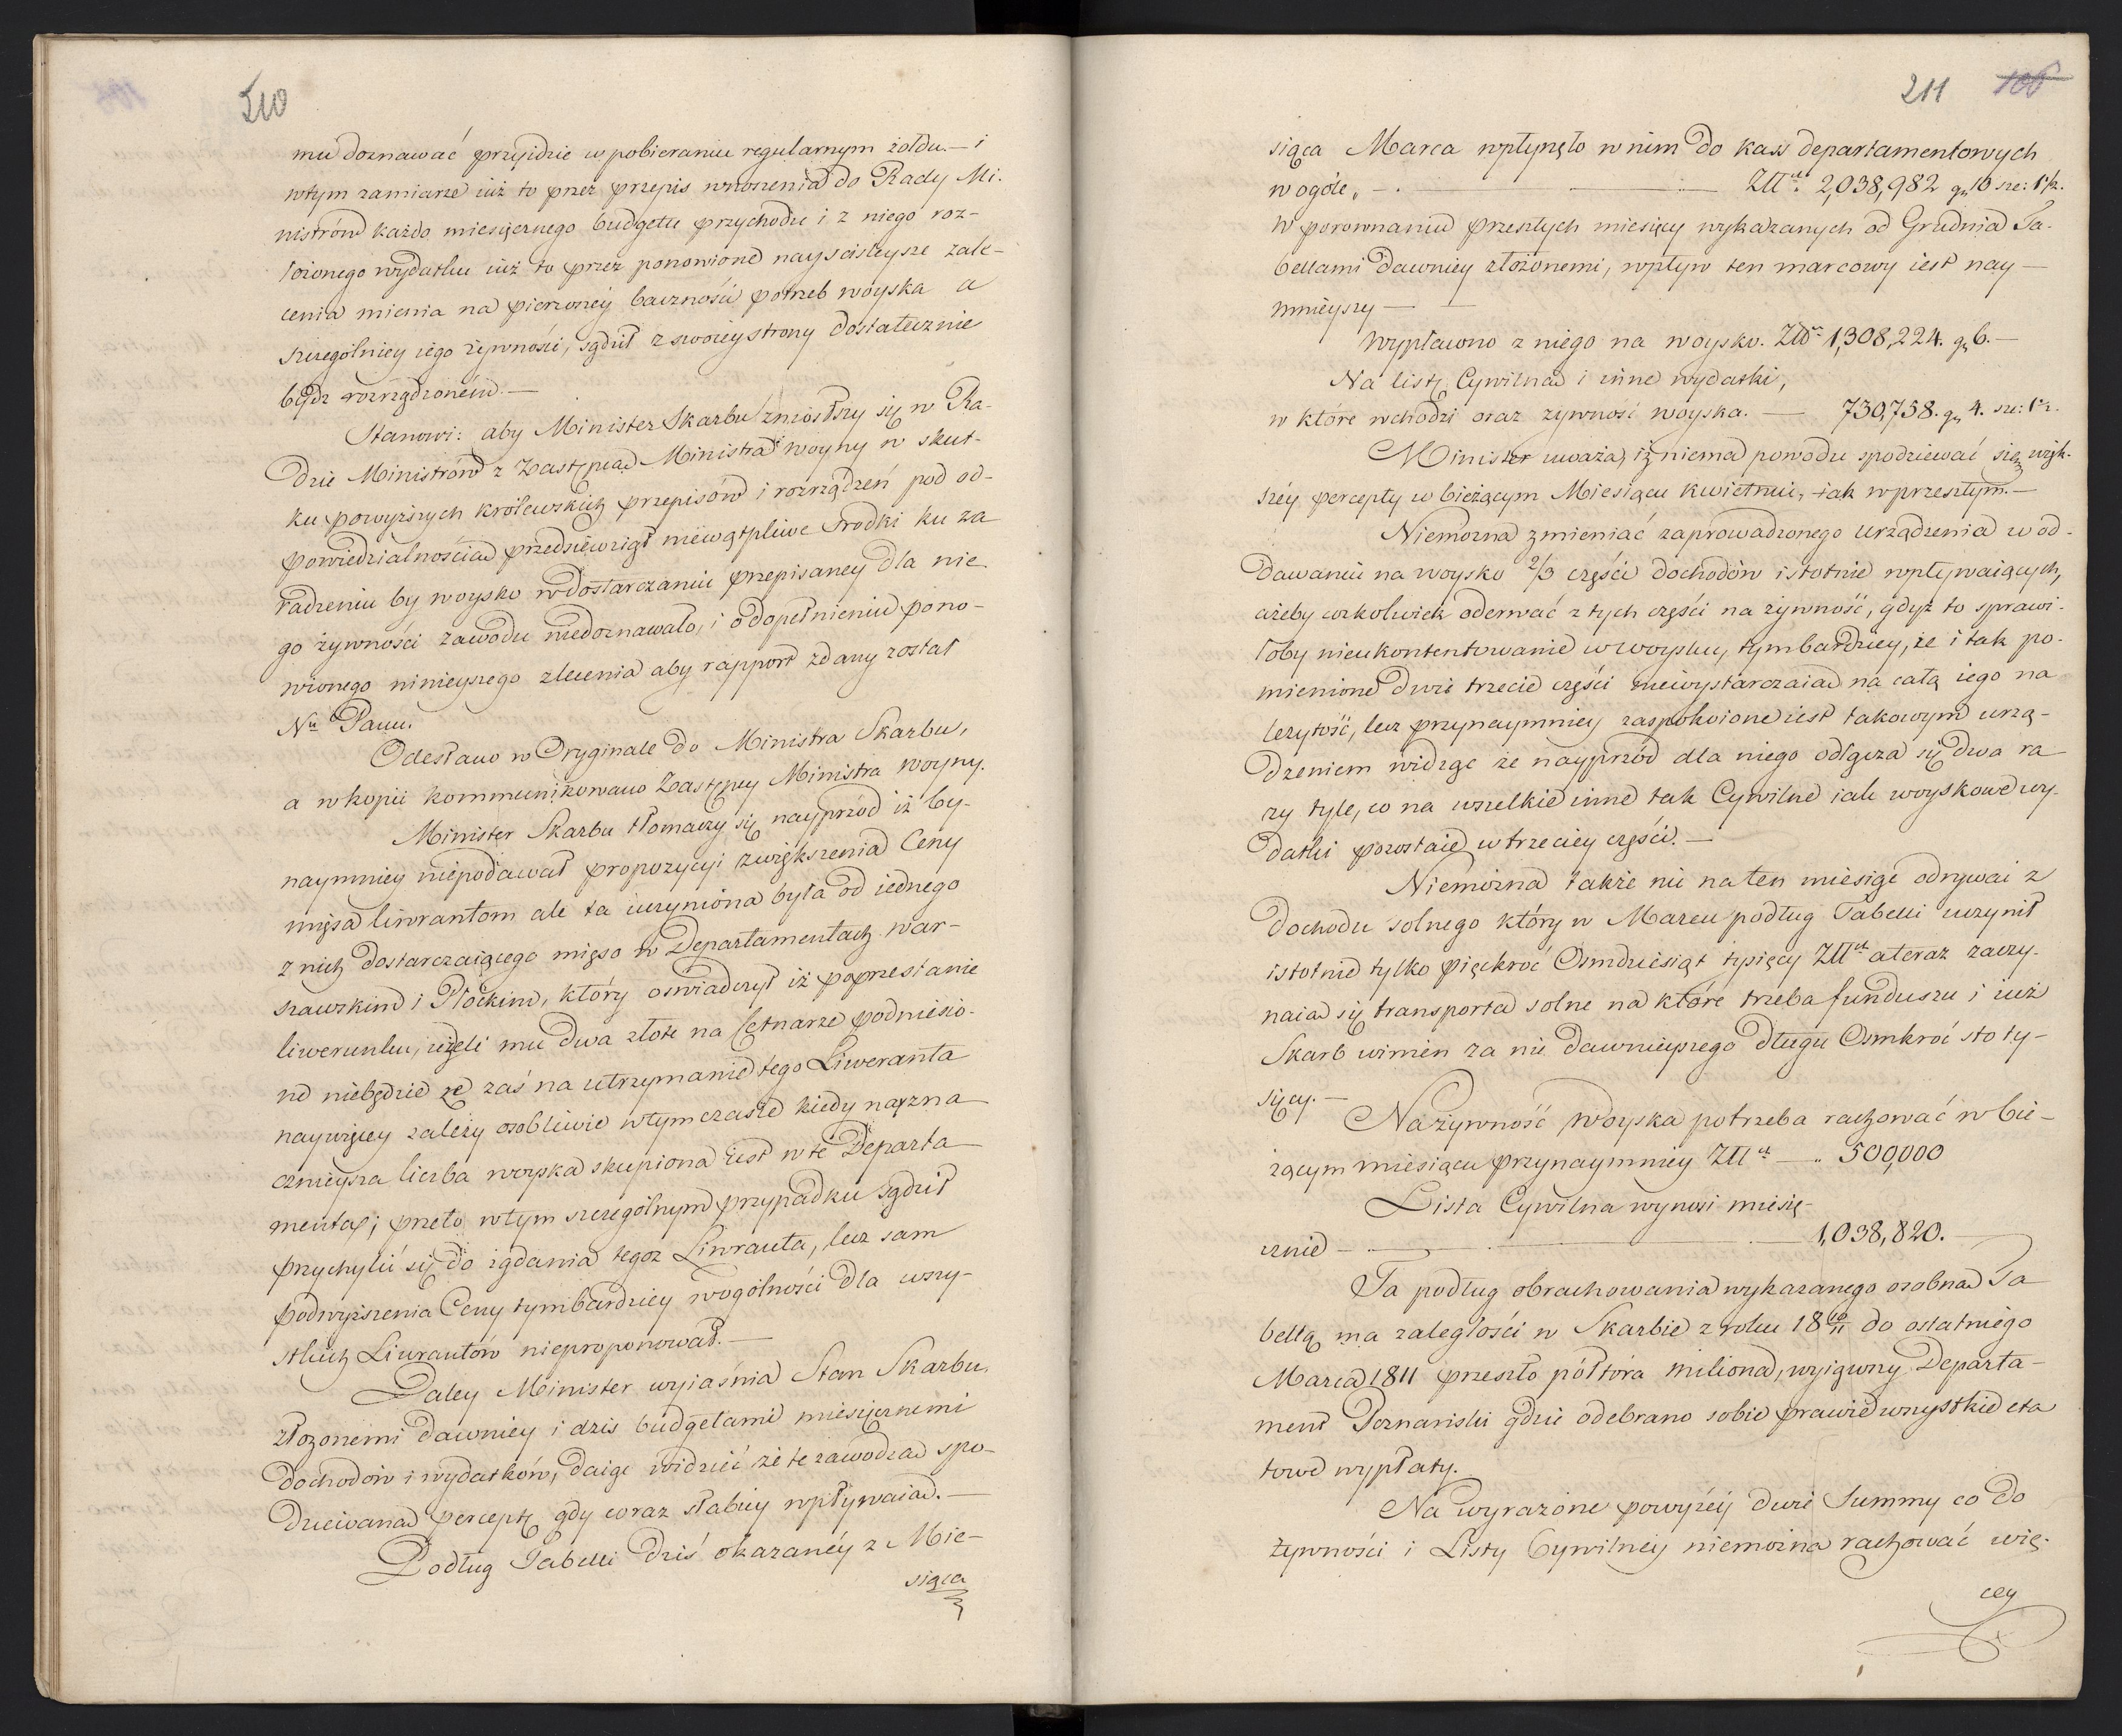 210
mu doznawać przyidzie w pobieraniu regularnym żołdu. — i
wtym zamiarze iuż to przez przepis wnoszenia do Rady Mi-
nistrów każdo miesięcznego budgetu przychodu i z niego roz-
łożonego wydatku iuż to przez ponowione nayściśleysze zale-
cenia mienia na pierwszéy baczności potrzeb woyska a
szczególniey iego żywności, sądził z swoiey strony dostatecznie
bydź rozrządzoném. —
Stanowi: aby Minister Skarbu zniósłszy się w Ra-
dzie Ministrów z Zastępcą Ministra woyny w skut-
ku powyższych królewskich przepisów i rozrządzeń pod od-
powiedzialnością przedsięwziął niewątpliwe środki ku za
radzeniu by woysko w dostarczaniu przepisaney dla nie
go żywności zawodu niedoznawało, i o dopełnieniu pono-
wionego ninieyszego zlecenia aby rapport zdany został
N. Panu.
Odesłano w Oryginale do Ministra Skarbu,
a w kopii kommunikowano Zastępcy Ministra Woyny.
Minister Skarbu tłomaczy się nayprzód iż by-
naymniey niepodawał propozycyi zwiększenia Ceny
mięsa liwrantom ale ta uczyniona była od iednego
z nich dostarczaiącego mięso w Departamentach war-
szawskim i Płockim, który oświadczył iż poprzestanie
liwerunku, ieżeli mu dwa złote na Cetnarze podniesio-
ne niebędzie że zaś na utrzymanie tego Liweranta
naywięcey zależy osobliwie w tym czasie kiedy nayzna
cznieysza liczba woyska skupiona iest w te Departa
menta; przeto w tym szczególnym przypadku sądził
przychylić się do żądania tegoż Liwranta, lecz sam
podwyższenia Ceny tymbardziey w ogólności dla wszy-
stkich Liwrantów nieproponował. —
Daley Minister wyiaśnia Stan Skarbu,
złożonemi dawniéy i dziś budgetami miesięcznemi
dochodów i wydatków, daiąc widzieć że te zawodzą spo-
dziewaną perceptę gdy coraz słabiey wpływaią. —
Podług Tabelli dziś okazanéy z Mie-
siąca
211 106
siąca Marca wpłynęło w nim do kass departamentowych
w ogóle. — Złł. 2,038,982 gr 10 sze: 1½.
W porównaniu przeszłych miesięcy wykazanych od Grudnia Ta-
bellami dawniey złożonemi, wpływ ten marcowy iest nay —
mnieyszy —
Wypłacono z niego na woysko. Złł. 1,308,224. gr 6. —
Na listę Cywilną i inne wydatki,
w które wchodzi oraz żywność woyska. — 730,758. gr 4. sze: 1½.
Minister uważa, iż niema powodu spodziewać się więk-
széy percepty w bieżącym Miesiącu kwietniu, iak w przeszłym. —
Niemożna zmieniać zaprowadzonego urządzenia w od-
dawaniu na woysko 2/3 części dochodów istotnie wpływaiących,
ażeby cokolwiek oderwać z tych części na żywność, gdyż to sprawi-
łoby nieukontentowanie w woysku, tymbardziey, że i tak po-
mienione dwie trzecie części niewystarczaią na całą iego na
leżytość, lecz przynaymniey zaspokoione iest takowym urzą-
dzeniem widząc że nayprzód dla niego odłącza się dwa ra
zy tyle, co na wszelkie inne tak Cywilne iak woyskowe wy-
datki pozostaie w trzeciey części. —
Niemożna także nic na ten miesiąc odrywać z
dochodu solnego który w Marcu podług Tabelli uczynił
istotnie tylko pięćkroć Ośmdziesiąt tysięcy Złł. a teraz zaczy-
naią się transporta solne na które trzeba funduszu i iuż
Skarb winien za nie dawnieyszego długu Ośmkroć sto ty-
sięcy. —
Na żywność Woyska potrzeba rachować w bie-
żącym miesiącu przynaymniey Złł. — 500,000
Lista Cywilna wynosi miesię-
cznie — 1,038,820.
Ta podług obrachowania wykazanego osobną Ta
bellą ma zaległości w Skarbie z roku 18 10/11 do ostatniego
Marca 1811 przeszło półtora miliona, wyiąwszy Departa-
ment Poznański gdzie odebrano sobie prawie wszystkie eta
towe wypłaty.
Na wyrażone powyżéy dwie Summy co do
żywności i Listy Cywilnéy niemożna rachować wię-
cey